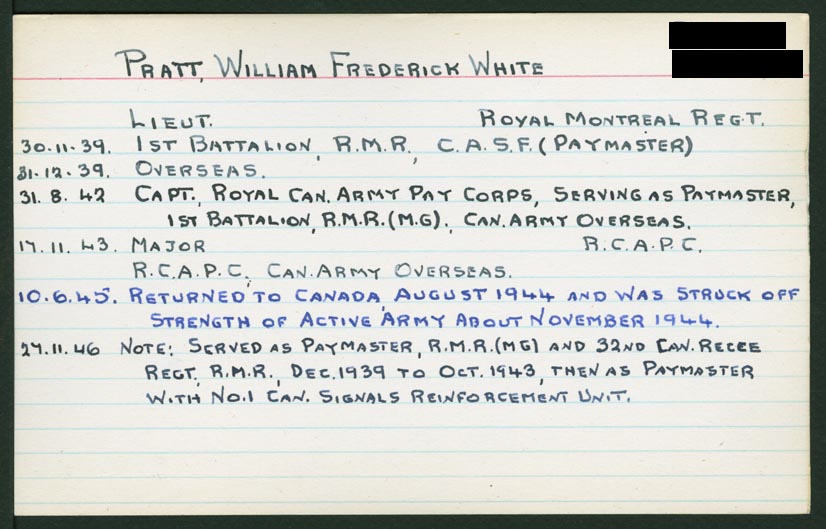 PRATT, WILLIAM FREDERICK WHITE
LIEUT. ROYAL MONTREAL REGT.
30.11.39. 1ST BATTALION, R.M.R., C.A.S.F. (PAYMASTER)
31.12.39. OVERSEAS.
31.8.42 CAPT., ROYAL CAN. ARMY PAY CORPS, SERVING AS PAYMASTER,
1ST BATTALION, R.M.R. (M.G)., CAN. ARMY OVERSEAS.
17.11.43. MAJOR R.C.A.P.C.
R.C.A.P.C., CAN. ARMY OVERSEAS.
10.6.45. RETURNED TO CANADA, AUGUST 1944 AND WAS STRUCK OFF
STRENGTH OF ACTIVE ARMY ABOUT NOVEMBER 1944.
27.11.46 NOTE: SERVED AS PAYMASTER, R.M.R. (MG) AND 32ND CAN. RECCE
REGT., R.M.R., DEC. 1939 TO OCT. 1943, THEN AS PAYMASTER
WITH NO.1 CAN. SIGNALS REINFORCEMENT UNIT.